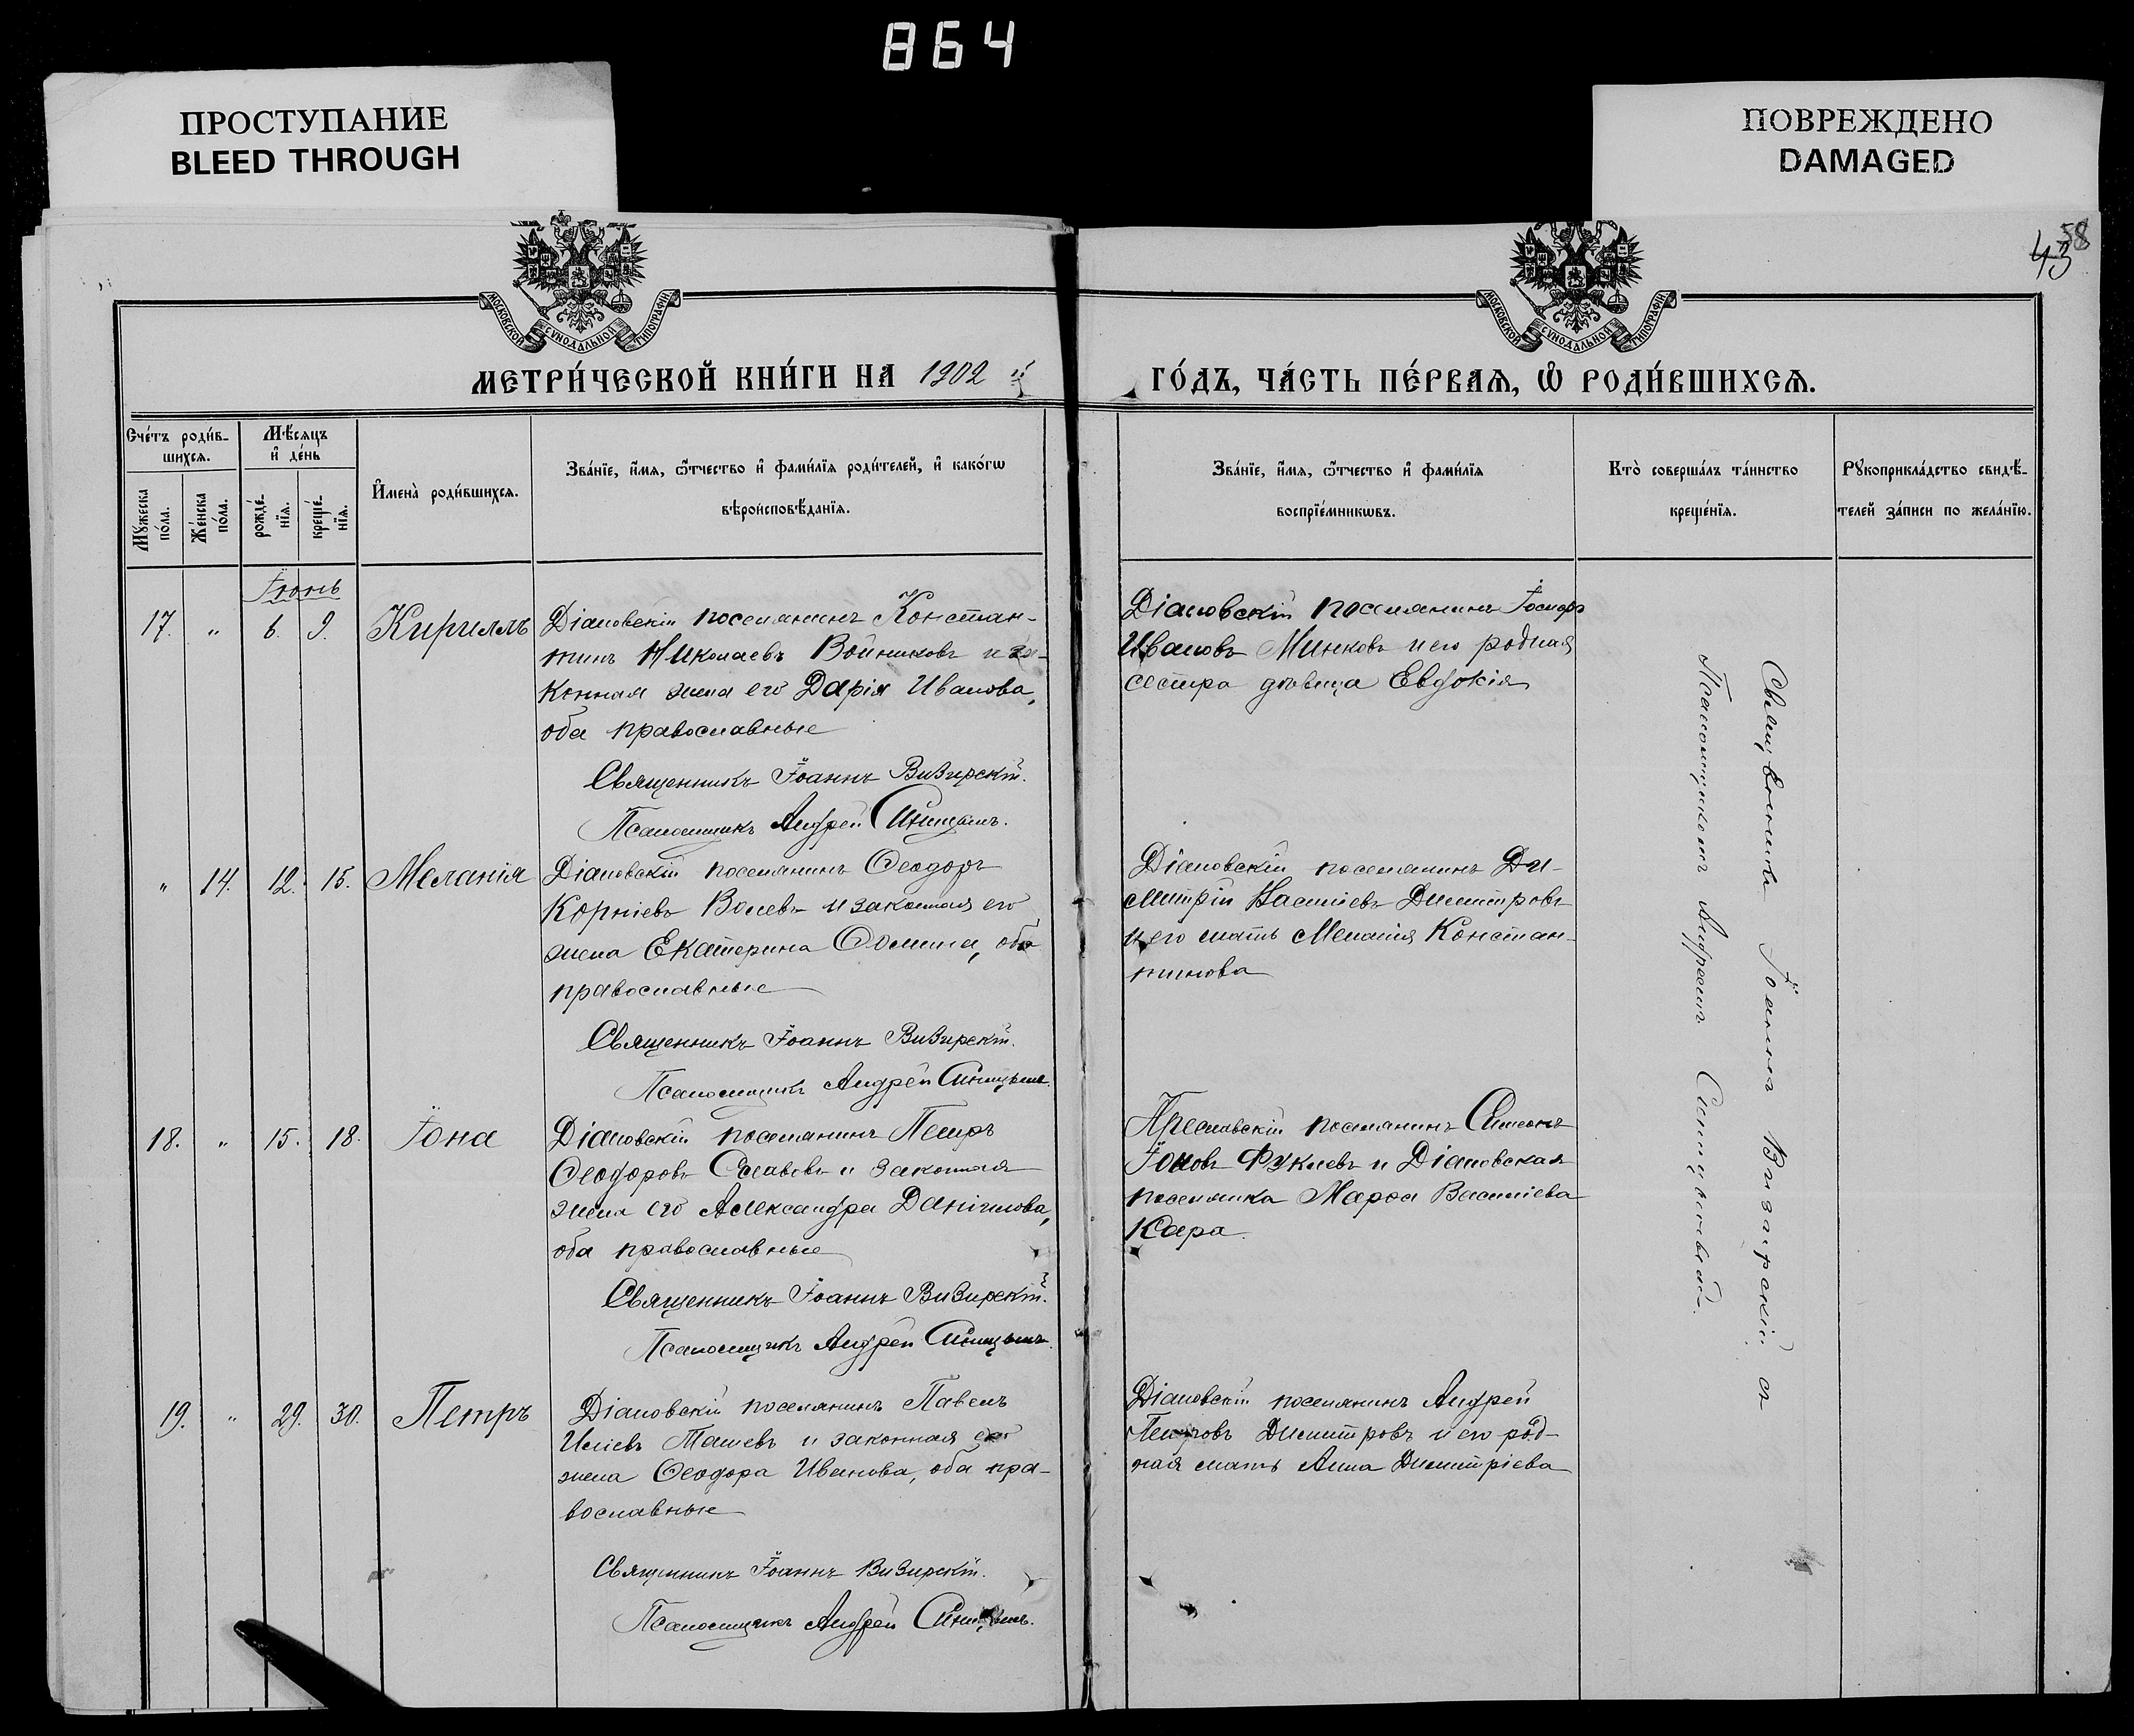 864
ПРОСТУПАНИЕ
BLEED THROUGH
ПОВРЕЖДЕНО
DAMAGED
58
43
МОСКОВСКОЙ СУНОДАЛЬНОЙ ТИПОГРАФІИ
МОСКОВСКОЙ СУНОДАЛЬНОЙ ТИПОГРАФІИ
МЕТРИ́ЧЕСКОЙ КНИ́ГИ НА 1902 й
ГО́ДЪ, ЧА́СТЬ ПЕ́РВАЯ, Ѡ РОДИ́ВШИХСЯ.
Сче́тъ роди́в-
шихся.
Мꙋ́жеска по́ла.
Же́нска по́ла.
Мѣ́сяцъ
и҆ де́нь
рожде́-
нїя.
креще́-
нїя.
И҆мена̀ роди́вшихся.
Зва́нїе, и҆́мя, ѻ҆́тчество и҆ фами́лїя роди́телей, и҆ како́гѡ
вѣроисповѣ́данїя.
Зва́нїе, и҆́мя, ѻ҆́тчество и҆ фами́лїя
воспрїе́мникѡвъ.
Кто̀ соверша́лъ та́инство
креще́нїя.
Рꙋкоприкла́дство свидѣ́-
телей за́писи по жела́нїю.
Іюнь
17. " 6. 9. Кириллъ
Діановскій поселянинъ Констан-
тинъ Николаевъ Войниковъ и за-
конная жена его Дарія Иванова,
оба православные
Священникъ Іоаннъ Визирскій.
Псаломщикъ Андрей Синицынъ.
Діановскій поселянинъ Іосифъ
Ивановъ Минковъ и его родная
сестра дѣвица Евдокія
" 14. 12. 15. Меланія
Діановскій поселянинъ Ѳеодоръ
Корніевъ Волевъ и законная его
жена Екатерина Ѳомина, оба
православные
Священникъ Іоаннъ Визирскій.
Псаломщикъ Андрей Синицынъ.
Діановскій поселянинъ Ди-
митрій Василіевъ Димитровъ
и его мать Меланія Констан-
тинова
18. " 15. 18. Іона
Діановскій поселянинъ Петръ
Ѳеодоровъ Славовъ и законная
жена его Александра Даніилова,
оба православные
Священникъ Іоаннъ Визирскій.
Псаломщикъ Андрей Синицынъ.
поселянинъ Симеонъ
Іоновъ Фуклевъ и Діановская
поселянка Марѳа Василіева
Кара.
19. " 29. 30. Петръ
Діановскій поселянинъ Павелъ
Иліевъ Ташевъ и законная его
жена Ѳеодора Иванова, оба пра-
вославные
Священникъ Іоаннъ Визирскій.
Псаломщикъ Андрей Синицынъ.
Діановскій поселянинъ Андрей
Петровъ Димитровъ и его род-
ная мать Анна Димитріева
Священникъ Іоаннъ Визирскій съ
Псаломщикомъ Андреемъ Синицынымъ.